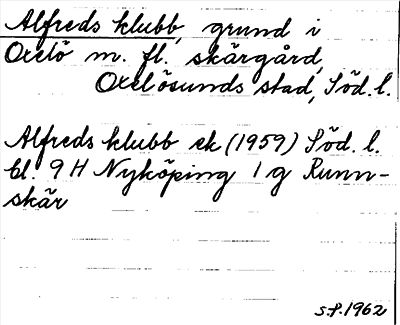 Alfreds klubb, grund i
Oxelö m. fl. skärgård,
Oxelösunds stad, Söd. l.
Alfreds klubb ek (1959) Söd. l.
bl. 9 H Nyköping 1 g Runn-
skär
s.f. 1962